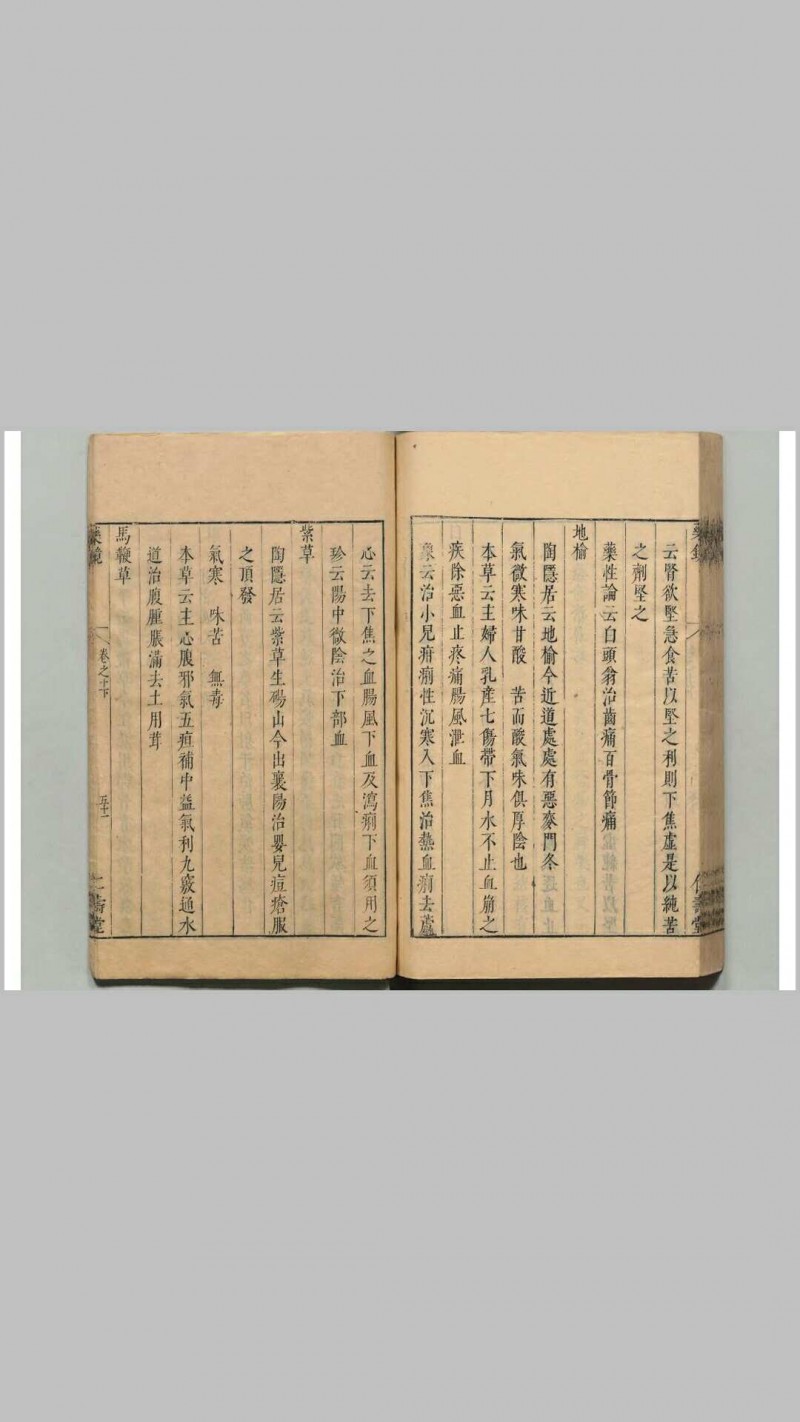 云腎欲堅急食苦以堅之利則下焦虛是以純苦
之劑堅之
藥性論云白頭翁治齒痛百骨節痛
地榆
陶隱居云地榆今近道處處有惡麥門冬
氣微寒味甘酸 苦而酸氣味俱厚陰也
本草云主婦人乳產七傷帶下月水不止血崩之
疾除惡血止疼痛腸風泄血
象云治小兒疳痢性沉寒入下焦治熱血痢去蘆
心云去下焦之血腸風下血及瀉痢下血須用之
珍云陽中微陰治下部血
紫草
陶隱居云紫草生碭山今出襄陽治嬰兒痘瘡服
之頂發
氣寒 味苦 無毒
本草云主心腹邪氣五疸補中益氣利九竅通水
道治腹腫脹滿去土用茸
馬鞭草
卷之下